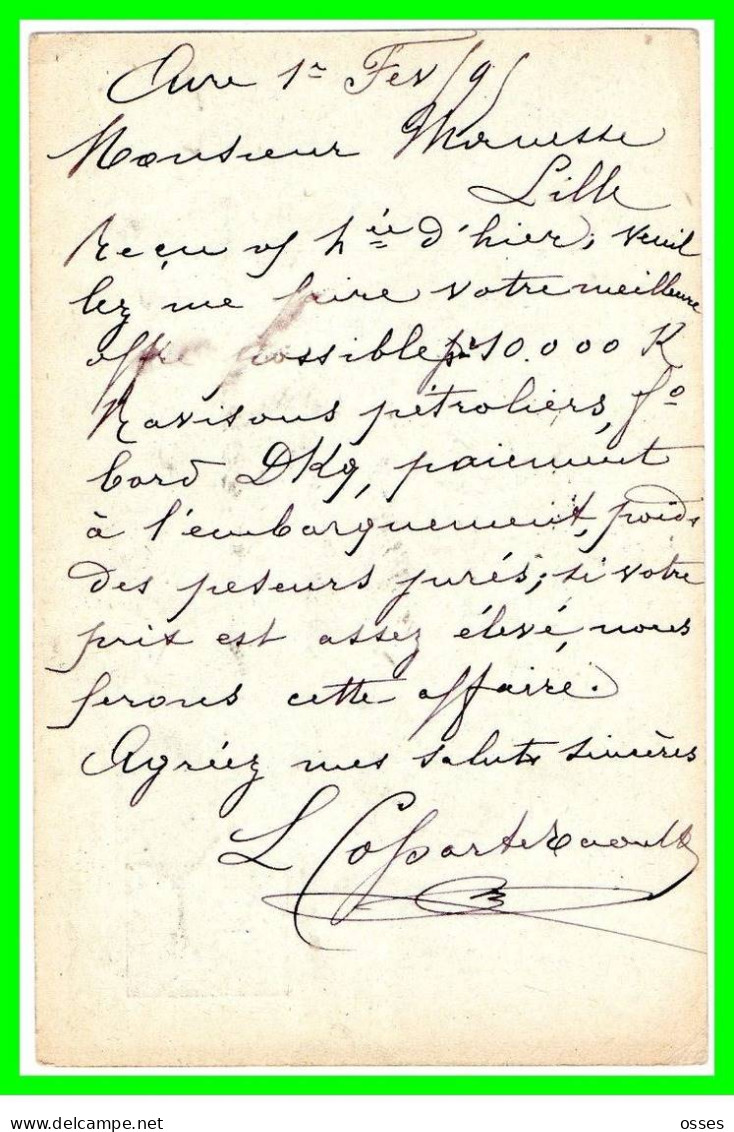 Aire 1er Fev /9
Monsieur
Lille
Reçu v/ h d'hier, veuil
lez me faire votre meilleure
offre possible pr 10.000 K
Ravisons pétroliers, fo
bord DKq, paiement
à l'embarquement, poids
des peseurs jurés; si votre
prix est assez élevé, nous
ferons cette affaire.
Agréez mes saluts sincères
L
osses